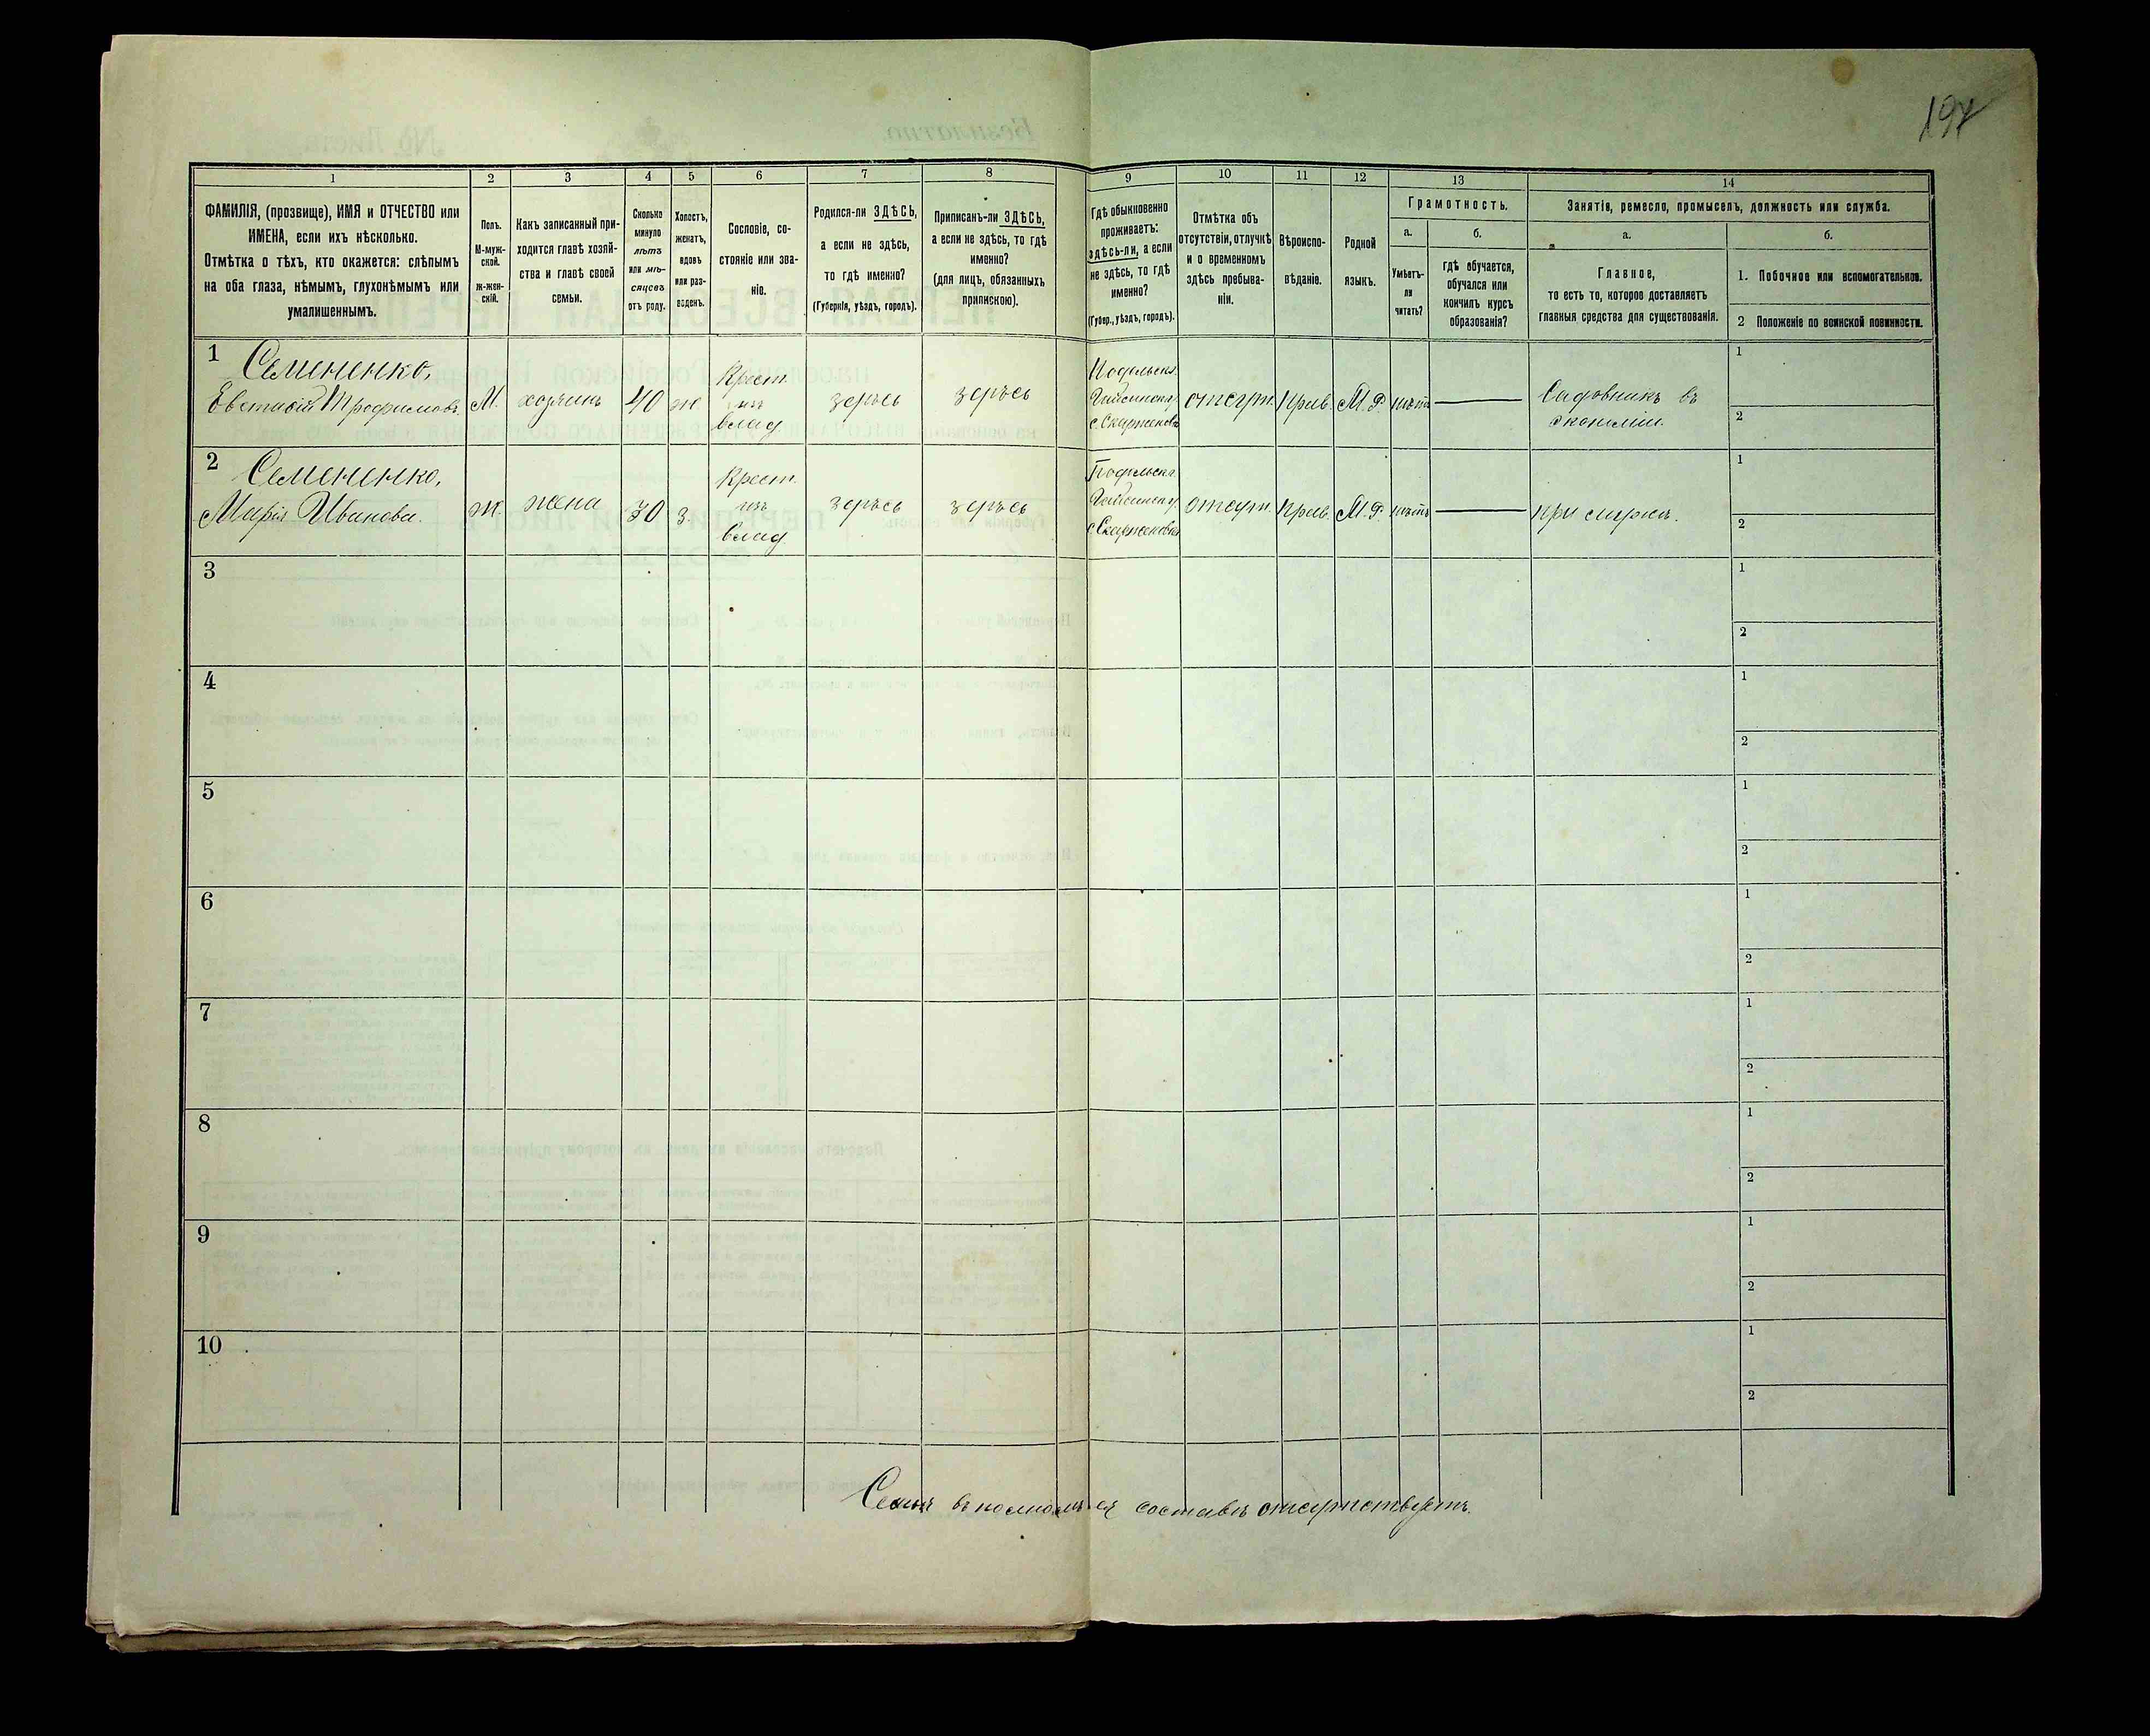 197
1 2 3 4 5 6 7 8 9 10 11 12 13 14
ФАМИЛІЯ, (прозвище), ИМЯ и ОТЧЕСТВО или
ИМЕНА, если ихъ нѣсколько.
Отмѣтка о тѣхъ, кто окажется: слѣпымъ
на оба глаза, нѣмымъ, глухонѣмымъ или
умалишеннымъ.
Полъ.
М-муж-
ской.
Ж-жен-
скій.
Какъ записанный при-
ходится главѣ хозяй-
ства и главѣ своей
семьи.
Сколько
минуло
лѣтъ
или мѣ-
сяцевъ
отъ роду.
Холостъ,
женатъ,
вдовъ
или раз-
веденъ.
Сословіе, со-
стояніе или зва-
ніе.
Родился-ли ЗДѢСЬ,
а если не здѣсь,
то гдѣ именно?
(Губернія, уѣздъ, городъ).
Приписанъ-ли ЗДѢСЬ,
а если не здѣсь, то гдѣ
именно?
(для лицъ, обязанныхъ
припискою).
Гдѣ обыкновенно
проживаетъ:
здѣсь-ли, а если
не здѣсь, то гдѣ
именно?
(Губер., уѣздъ, городъ).
Отмѣтка объ
отсутствіи, отлучкѣ
и о временномъ
здѣсь пребыва-
ніи.
Вѣроиспо-
вѣданіе.
Родной
языкъ.
Грамотность.
а.
Умѣетъ-
ли
читать?
б.
гдѣ обучается,
обучался или
кончилъ курсъ
образованія?
Занятіе, ремесло, промыселъ, должность или служба.
а.
Главное,
то есть то, которое доставляетъ
главныя средства для существованія.
б.
1. Побочное или вспомогательное.
2 Положеніе по воинской повинности.
1 Семененко,
Евстафій Трофимовъ М. хозяинъ 40 ж. Крест. изъ влад. здѣсь здѣсь Подольск. Гайсинск. у. с. отсут. Прав. М. Р. нѣтъ Садовникъ въ
экономіи.
1
2
2 Семененко,
Марія Иванова. Ж. жена 30 з. Крест. изъ влад. здѣсь здѣсь Подольск. Гайсинск. у. с. отсут. Прав. М. Р. нѣтъ при мужѣ.
1
2
3 1
2
4 1
2
5 1
2
6 1
2
7 1
2
8 1
2
9 1
2
10 1
2
Семья въ полномъ ея составѣ отсутствуетъ.